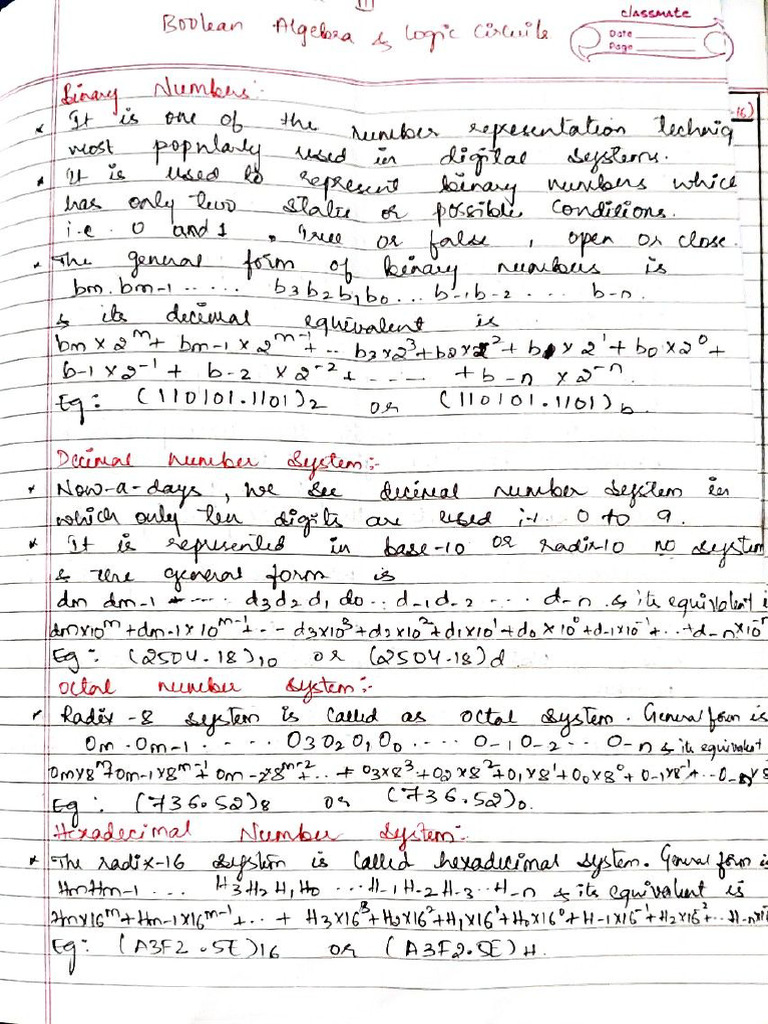 III
Boolean Algebra & Logic Circuits
classmate
Date
Page
Binary Numbers:-
16)
* It is one of the number representation techniq
most popularly used in digital systems.
* It is used to represent binary numbers which
has only two states or possible conditions.
i.e. 0 and 1, True or false, open or close.
* The general form of binary numbers is
bm.bm-1 ..... b3b2b1b0... b-1b-2 .... b-n
& its decimal equivalent is
bm×2^m + bm-1×2^m-1 +.. b3×2^3+b2×2^2+b1×2^1+b0×2^0+
b-1×2^-1 + b-2 ×2^-2 +---- +b-n ×2^-n.
Eg: (110101.1101)2 or (110101.1101)b
Decimal number System:-
* Now-a-days, we see decimal number system in
which only ten digits are used i.e. 0 to 9.
* It is represented in base-10 or radix-10 no system
& the general form is
dm dm-1 ---- d3d2d1d0.. d-1d-2 ... d-n & its equivalent i
dm×10^m+dm-1×10^m-1+-- d3×10^3+d2×10^2+d1×10^1+d0×10^0+d-1×10^-1+..+d-n×10^-n
Eg: (2504.18)10 or (2504.18)d
Octal number System:-
* Radix-8 system is called as octal system. General form is
Om.Om-1 .---. O3O2O1O0 .... O-1O-2.. O-n & its equivalent
Om×8^m+Om-1×8^m-1+Om-2×8^m-2+..+O3×8^3+O2×8^2+O1×8^1+O0×8^0+O-1×8^-1+..O-n×8
Eg: (736.52)8 or (736.52)o
Hexadecimal Number System:-
* The radix-16 system is called hexadecimal system. General form i
HmHm-1 ... H3H2H1H0 ...H-1H-2H-3..H-n & its equivalent is
Hm×16^m+Hm-1×16^m-1+..+ H3×16^3+H2×16^2+H1×16^1+H0×16^0+H-1×16^-1+H2×16^2+..H-n×1
Eg: (A3F2.5E)16 or (A3F2.5E)H.